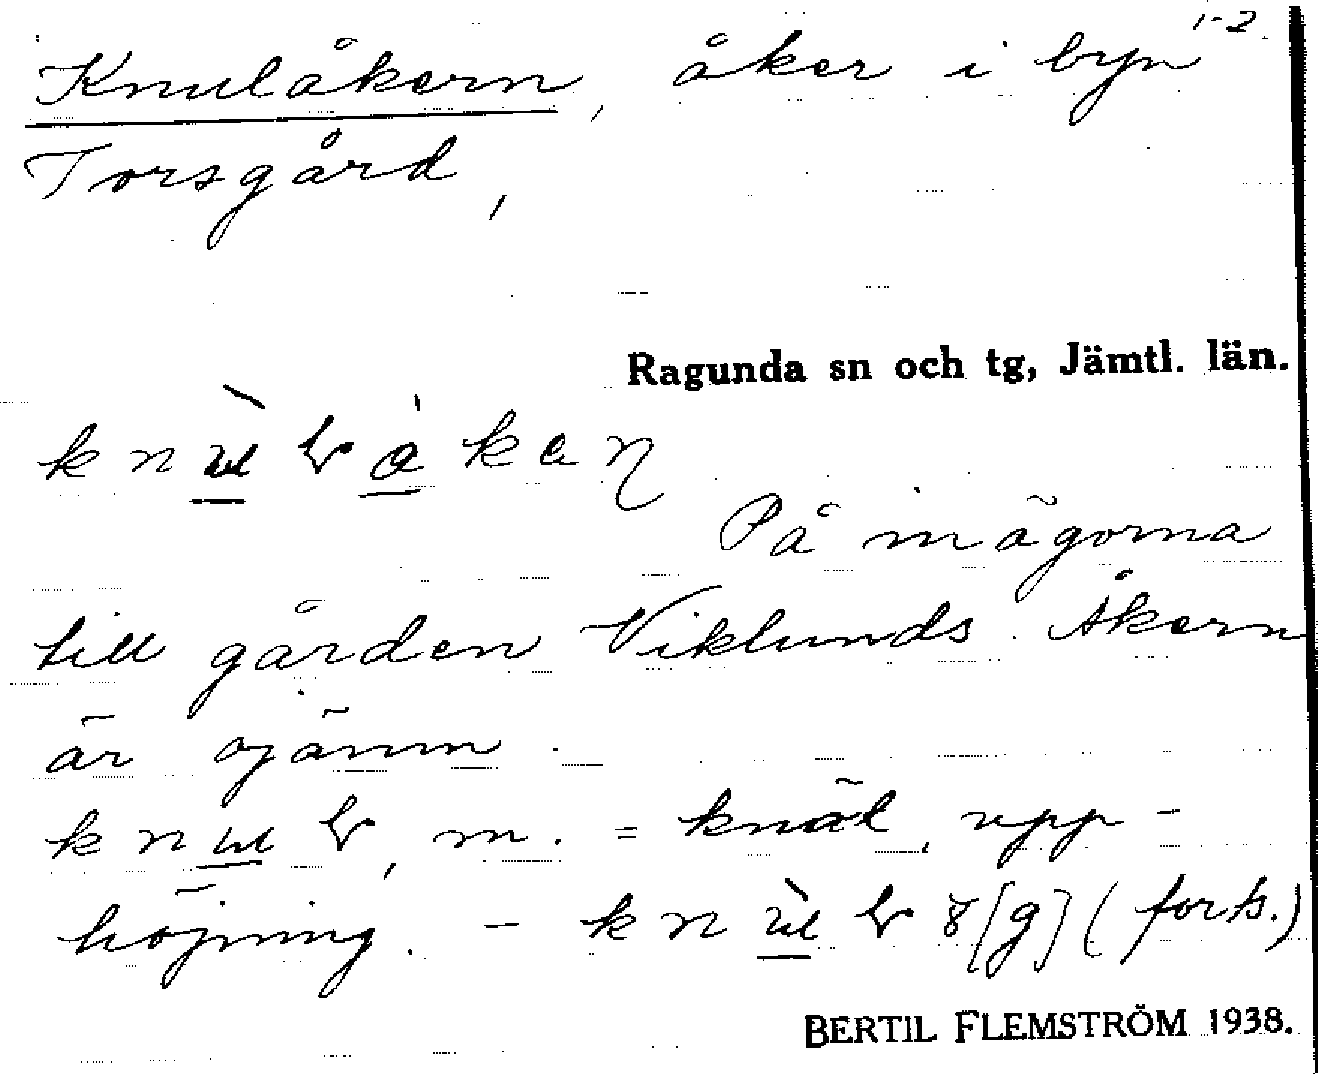 1-2
Knulåkern, åker i byn
Torsgård,
Ragunda sn och tg, Jämtl. län.
På mägorna
till gården Viklunds. Åkern
är ojämn.
m. = knäl, upp-
höjning. - [g] (forts.)
BERTIL FLEMSTRÖM 1938.